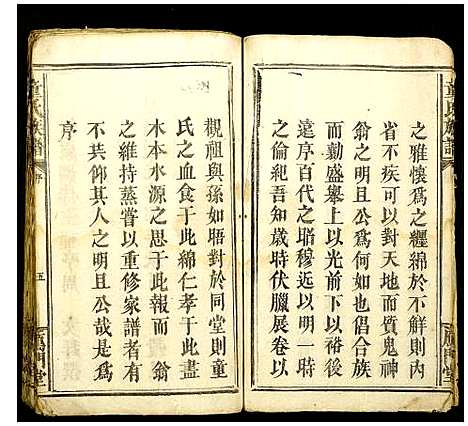 童氏族譜
之雅懷爲之纏綿於不鮮則內
省不疾可以對天地而質鬼神
翁之明且公爲何如也倡合族
而勷盛舉上以光前下以裕後
遠序百代之昭穆近以明一時
之倫紀吾知歲時伏臘展卷以
鴈門堂
觀祖與孫如晤對於同堂則童
氏之血食于此綿仁孝于此盡
水本水源之思于此報而 翁
之維持蒸嘗以重修家譜者有
不共仰其人之明且公哉是爲
序
童氏族譜
序
五
鴈門堂